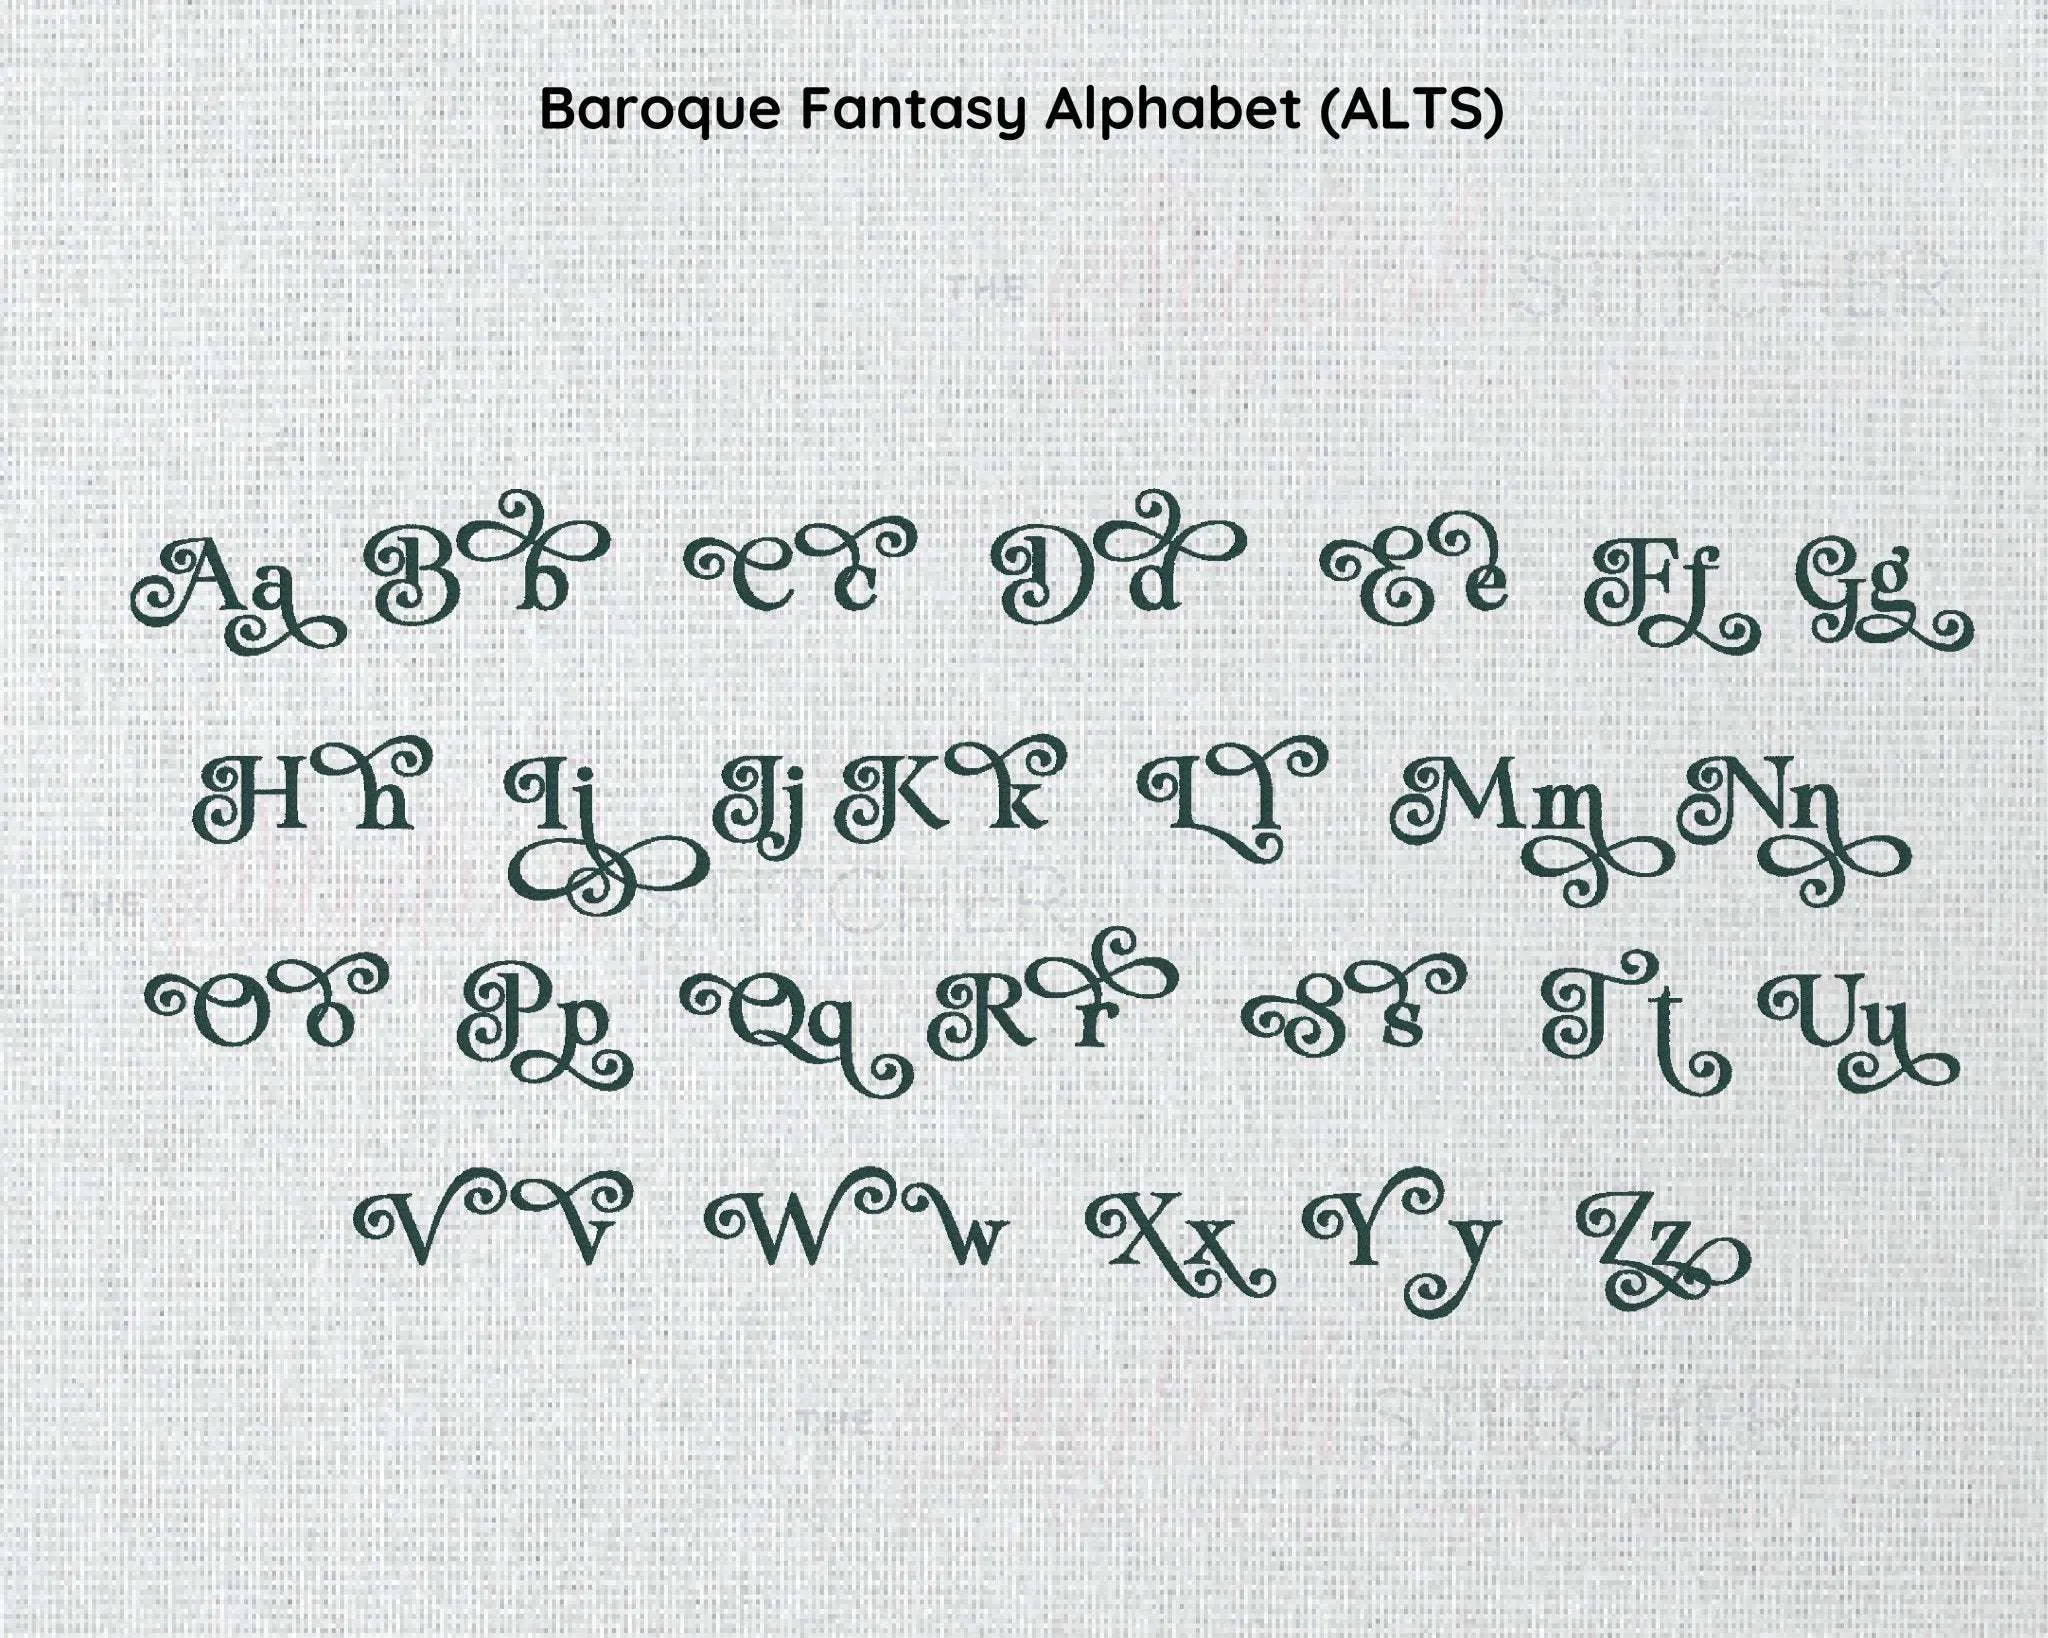 Baroque Fantasy Alphabet (ALTS)
THE STITCHER
Aa Bb Cc Dd Ee Ff Gg
Hh Ii Jj Kk Ll Mm Nn
THE STITCHER
Oo Pp Qq Rr Ss Tt Uu
Vv Ww Xx Yy Zz
THE STITCHER